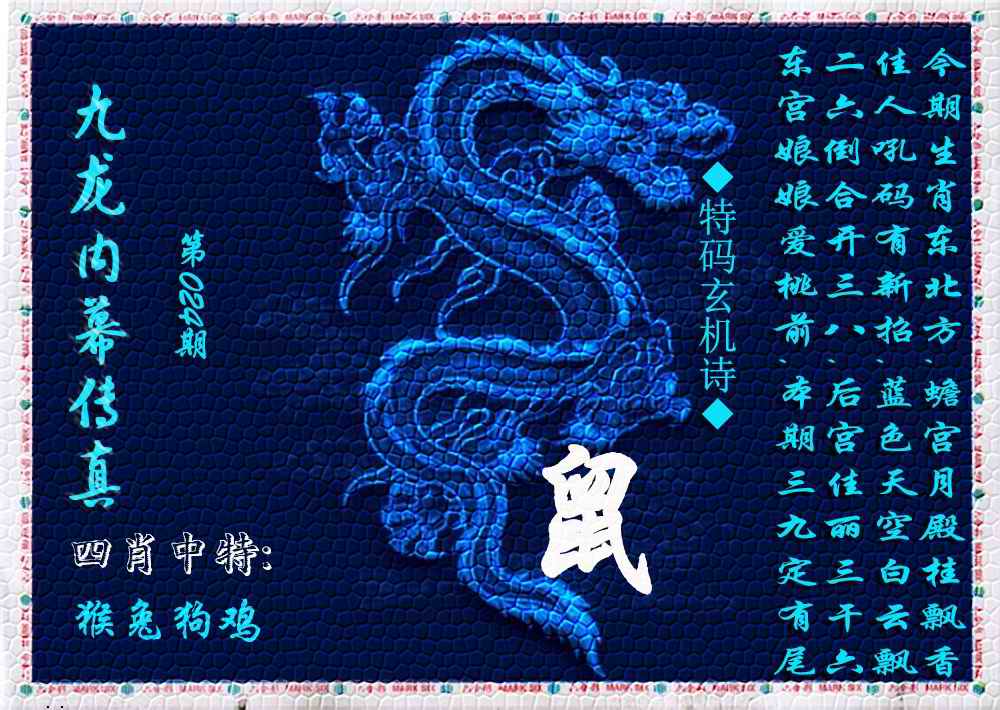 今期生肖东北方、蟾宫月殿桂飘香
佳人吼码有新招、蓝色天空白云飘
二六倒合开三八、后宫佳丽三千六
东宫娘娘爱桃前、本期三九定有尾
◆特码玄机诗◆
第024期
九龙内幕传真
四肖中特:
猴兔狗鸡
鼠